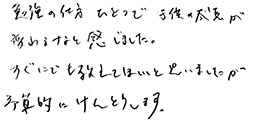 勉強の仕方ひとつで子供の成長が
変わるなと感じました。
すぐにでも教えてほしいと思いましたが
予算的にけんとうします。